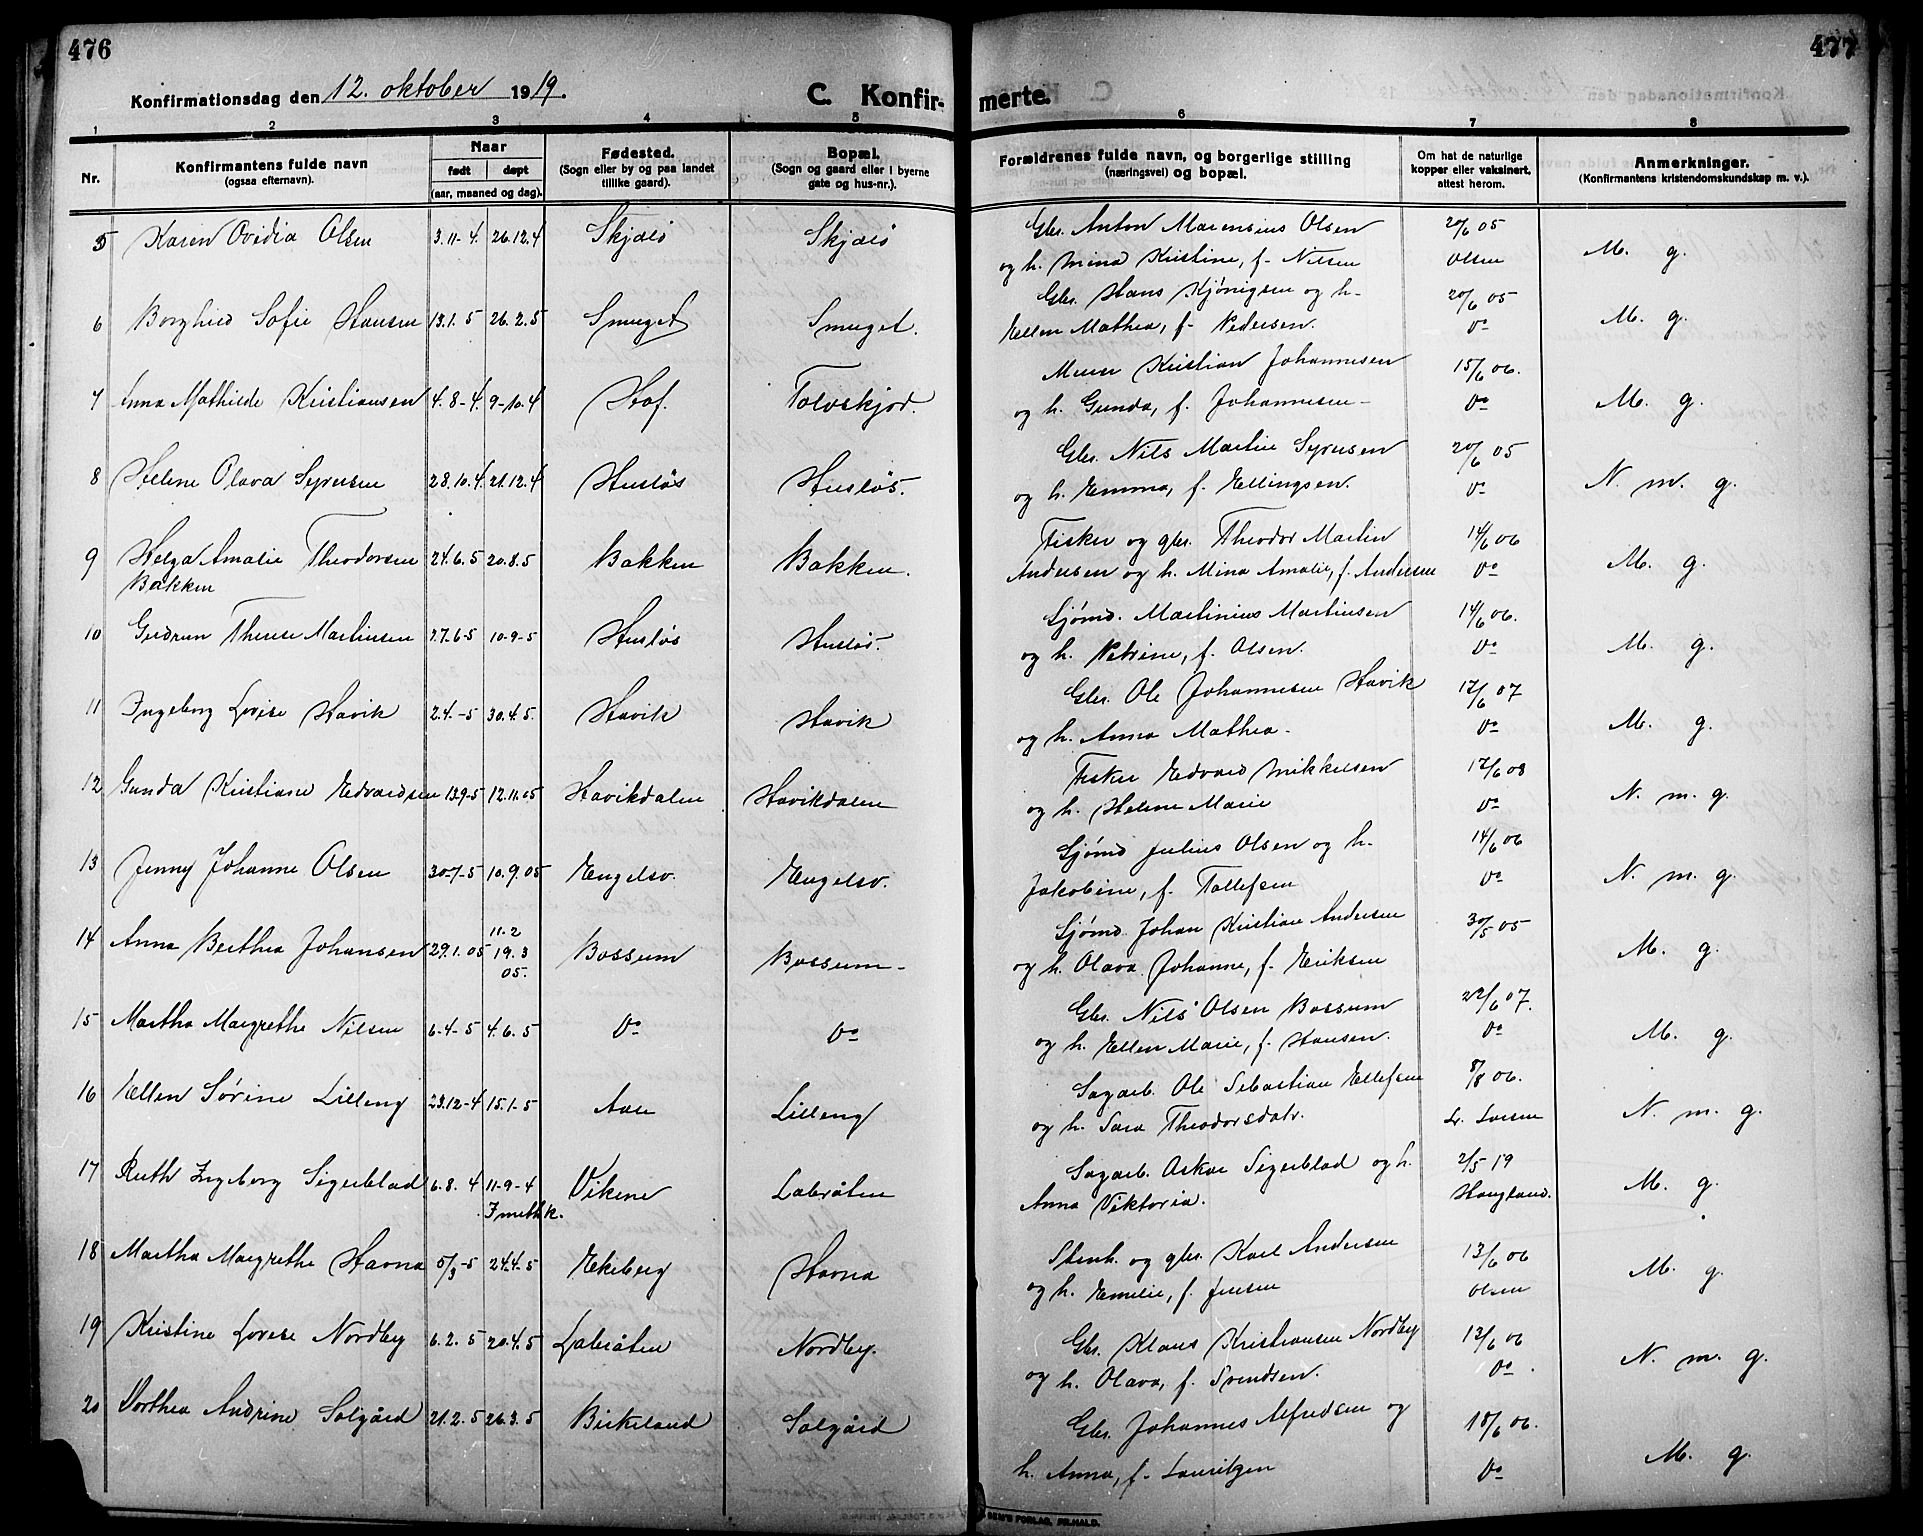 476
477
Konfirmationsdag den 12. oktober 1919.
C. Konfirmerte.
1 2 3 4 5 6 7 8
Nr.
Konfirmantens fulde navn
(ogsaa efternavn).
Naar
født døpt
(aar, maaned og dag).
Fødested.
(Sogn eller by og paa landet
tillike gaard).
Bopæl.
(Sogn og gaard eller i byerne
gate og hus-nr.).
Forældrenes fulde navn, og borgerlige stilling
(næringsvei) og bopæl.
Om hat de naturlige
kopper eller vaksinert,
attest herom.
Anmerkninger.
(Konfirmantens kristendomskundskap m. v.).
5 Karen Ovidia Olsen 3.11-4. 26.12.4 Skjælø Skjælø Gbr. Anton Marensius Olsen 20/6 05 M. g.
og h. Mina Kristine, f. Nilsen Olsen
6 Borghild Sofie Hansen 13.1.5 26.2.5 Smuget Smuget. Gbr. Hans Kjønigsen og h. 20/6 05 M. g.
Ellen Mathea, f. Pedersen. Do
7 Anna Mathilde Kristiansen 4.8-4. 9-10.4 Hof. Tolvskjod. Murer Kristian Johannesen 15/6 06. M. g.
og h. Gunda, f. Johannesen Do
8 Helene Olava Syversen 28.10.4 21.12.4 Husløs Husløs. Gbr. Nils Martin Syversen 20/6 05 N. m. g.
og h. Emma, f. Ellingsen. Do
9 Helga Amalie Theodorsen 24.6.5 20.8.5 Bakken Bakken. Fisker og gbr. Theodor Martin 14/6 06 M. g.
Bakken Andersen og h. Mina Amalie, f. Andersen Do
10 Gudrun Therese Martinsen 27-6-5 10-9-5 Husløs Husløs. Sjømd. Martinius Martinsen 14/6 06. M. g.
og h. Petrine, f. Olsen. Do
11 Ingeborg Lovise Havik 2.4.-5 30.4.5. Havik Havik Gbr. Ole Johannesen Havik 12/6 07 M. g.
og h. Anna Mathea. Do
12 Gunda Kristiane Edvardsen 13.9-5 12.11.05 Havikdalen Havikdalen Fisker Edvard Mikkelsen 12/6 08 N. m. g.
og h. Helene Marie Do
13 Jenny Johanne Olsen 30-7-5 10.9.05 Engelsv. Engelsv. Sjømd Julius Olsen og h. 14/6 06 N. m. g.
Jakobine, f. Tollefsen Do
14 Anna Berthea Johansen 29.1.05 11.2 19.3 05. Bossum Bossum Sjømd. Johan Kristian Andersen 30/5 05 M. g.
og h. Olava Johanne, f. Eriksen
15 Martha Margrethe Nilsen 6-4-5 4.6.5 Do Do Gbr. Nils Olsen Bossum 22/6 07. M. g.
og h. Ellen Marie, f. Hansen. Do
16 Ellen Sørine Lilleng 23.12-4 15.1-5 Aale Lilleng Sagarb. Ole Sebastian Ellefsen 8/8 06. N. m. g.
og h. Sara Theodorsdatr. Lr. Larsen
17 Ruth Ingeborg Sigerblad 6.8.4 11-9-4 Vikene Labråten Sagarb. Oskar Sigerblad og h. 2/5 19 M. g.
Anna Viktoria. Haugland.
18 Martha Margrethe Havna 5/3-5 24.4-5 Ekeberg Havna Stenh. og gbr. Karl Andersen 13/6 06 M. g.
og h. Emilie, f. Jensen Olsen
19 Kristine Lovise Nordby 6.2.5 20.4.5 Labråten Nordby. Gbr. Klaus Kristiansen Nordby 13/6 06 N. m. g.
og h. Olava, f. Svendsen. Do
20 Dorthea Andrine Solgård 21.2.5 26.3.5 Birkeland Solgård Gbr. Johannes Alfredsen og 18/6 06. M. g.
h. Anna, f. Lauritzen Do
FORLAG, FR.HALD.